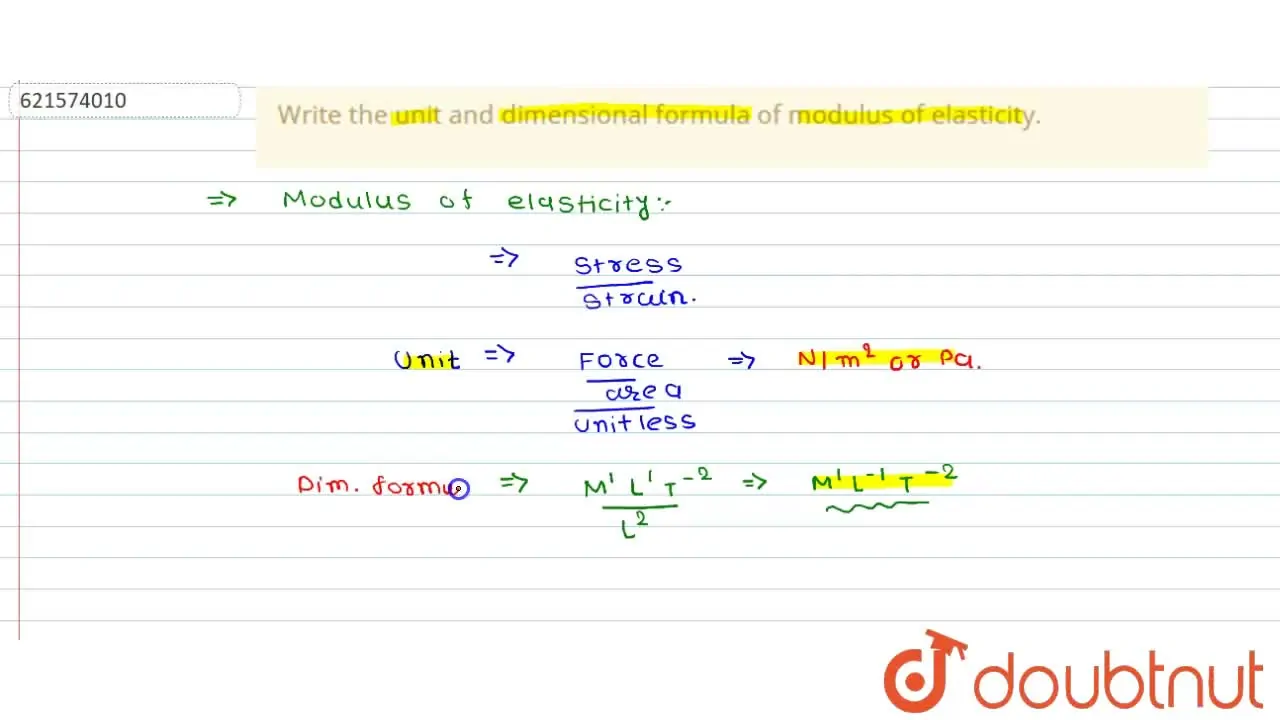 621574010
Write the unit and dimensional formula of modulus of elasticity.
=> Modulus of elasticity:-
=> Stress
Strain.
Unit => Force => N/m² or Pa.
area
Unitless
Dim. formu => M¹ L¹ T⁻² => M¹ L⁻¹ T⁻²
L²
doubtnut